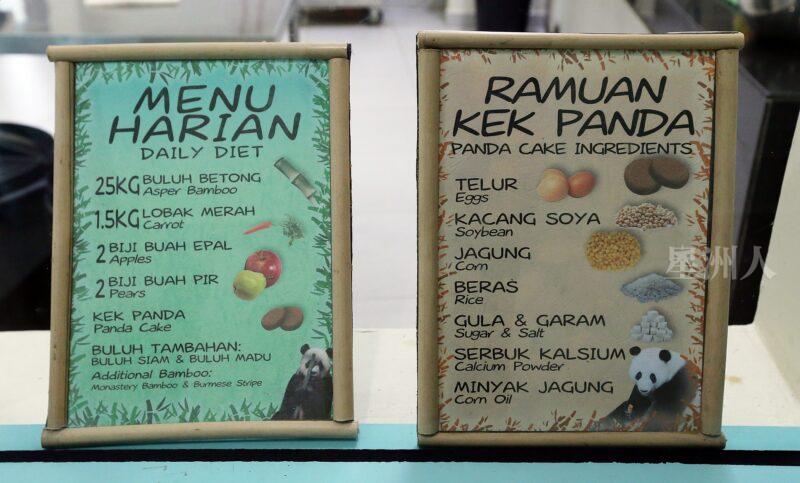 MENU
HARIAN
DAILY DIET
25KG BULUH BETONG
Asper Bamboo
1.5KG LOBAK MERAH
Carrot
2 BIJI BUAH EPAL
Apples
2 BIJI BUAH PIR
Pears
KEK PANDA
Panda Cake
BULUH TAMBAHAN:
BULUH SIAM & BULUH MADU
Additional Bamboo:
Monastery Bamboo & Burmese Stripe
RAMUAN
KEK PANDA
PANDA CAKE INGREDIENTS
TELUR
Eggs
KACANG SOYA
Soybean
JAGUNG
Corn
BERAS
Rice
GULA & GARAM
Sugar & Salt
SERBUK KALSIUM
Calcium Powder
MINYAK JAGUNG
Corn Oil
星洲人